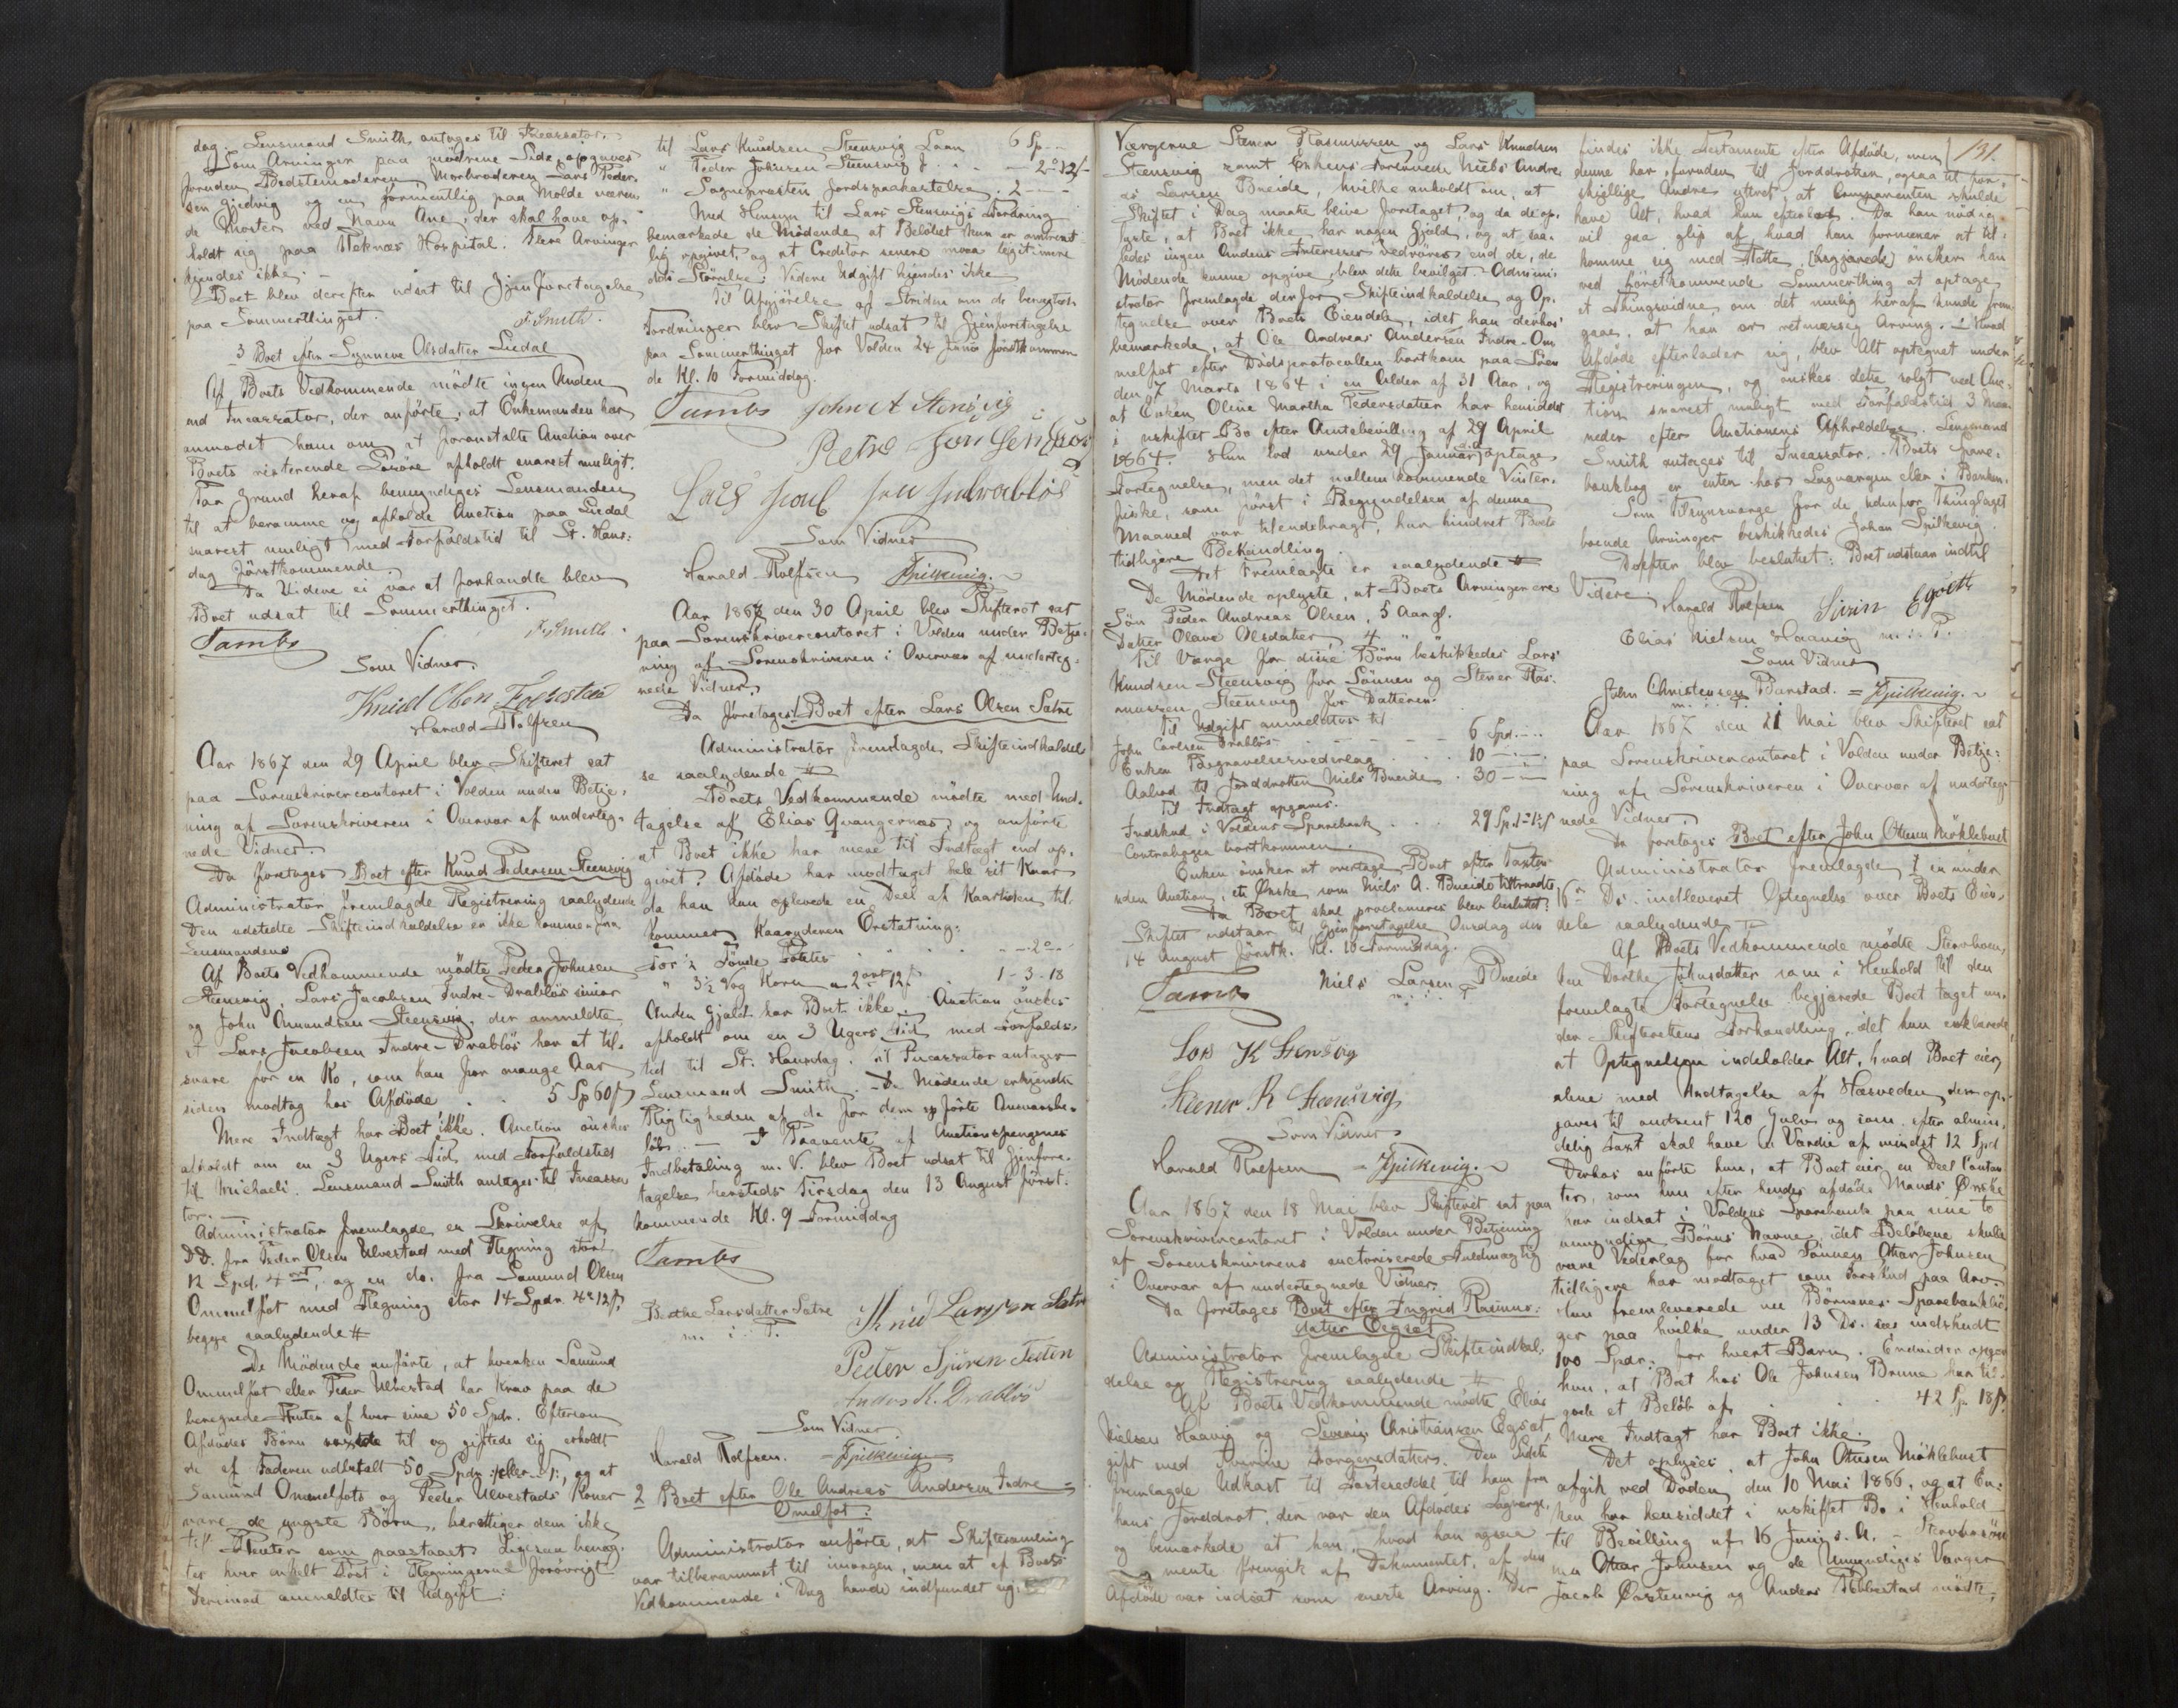 dag. Lensmand Smith antages til Incassator.
Som Arvinger paa mødrene Side opgaves
foruden Bedstemoderen, Morbroderen Lars Peder-
sen Gjedvig og en formentlig paa Molde væren-
de Moster ved Navn Ane, der skal have op-
holdt sig paa Reknæs Hospital. Flere Arvinger
kjendes ikke. -
Boet blev derefter udsat til Gjenforetagelse
paa Sommerthinget.
F. Smith.
3 Boet efter Synneve Olsdatter Liedal
Af Boets Vedkommende mødte ingen Anden
end Incassator, der anførte, at Enkemanden har
anmodet ham om at foranstalte Auction over
Boets resterende Løsøre afholdt snarest muligt.
Paa Grund heraf bemyndiges Lensmanden
til at beramme og afholde Auction paa Liedal
snarest muligt med Forfaldstid til St. Hans-
dag førstkommende.
Da Videre ei var at forhandle blev
Boet udsat til Sommerthinget.
Tambs F. Smith.
Som Vidner.
Knud Olsen
Harald Rolfsen
Aar 1867 den 29 April blev Skifteret sat
paa Sorenskrivercontoret i Volden under Betje-
ning af Sorenskriveren i Overvær af underteg-
nede Vidner.
Da foretoges Boet efter Knud Pedersen Steensvig
Administrator fremlagde Registrering saalydende
Den udstedte Skifteindkaldelse er ikke kommen fra
Lensmanden.
Af Boets Vedkommende mødte Peder Johnsen
Steensvig, Lars Jacobsen Indre-Drabløs senior
og John Amundsen Steensvig, der anmeldte
at Lars Jacobsen Indre-Drabløs har at til-
svare for en Ko, som han for mange Aar
siden modtog hos Afdøde . . 5 Sp 60 ß
Mere Indtægt har Boet ikke. Auction ønskes
afholdt om en 3 Ugers Tid med Forfaldstid
til Michaeli. Lensmand Smith antages til Incassa-
tor. -
Administrator fremlagde en Skrivelse af
D.D. fra Peder Olsen Ulvestad med Regning stor
12 Spd. 4 ort, og en do. fra Samund Olsen
Ommelfot med Regning stor 14 Spdr. 4 ort 12 ß,
begge saalydende #
De Mødende anførte, at hverken Samund
Ommelfot eller Peder Ulvestad har Krav paa de
beregnede Renter af hver sine 50 Spdr. Eftersom
Afdødes Børn voxte til og giftede sig erholdt
de af Faderen udbetalt 50 Spdr. , og at
Samund Ommelfots og Peder Ulvestads Koner
vare de yngste Børn, berettiger dem ikke
til Renter som paastaaet. Ligesaa benæg-
tes hver enkelt Post i Regningerne forøvrigt.
Derimod anmeldtes til Udgift:
til Lars Knudsen Steensvig Laan 6 Sp - -
" Peder Johnsen Steensvig - 2 - 12 ß
" Sognepræsten Jordspaakastelse . 2 - -
Med Hensyn til Lars Steensvigs Fordring
bemærkede de Mødende at Beløbet kun er omtrent-
lig opgivet, og at Creditor senere maa legitimere
dets Størrelse. Videre Udgift kjendes ikke
Til Afgjørelse af Striden om de benægtede
Fordringer blev Skiftet udsat til Gjenforetagelse
paa Sommerthinget for Volden 24 Juni førstkommen-
de Kl. 10 Formiddag.
Tambs John A Stensvig
Peder
Lars Jacobsen
Som Vidner
Harald Rolfsen Spilkevig.
Aar 1867 den 30 April blev Skifteret sat
paa Sorenskrivercontoret i Volden under Betje-
ning af Sorenskriveren i Overvær af underteg-
nede Vidner.
Da foretoges 1 Boet efter Lars Olsen Satre
Administrator fremlagde Skifteindkaldel-
se saalydende #
Af Boets Vedkommende mødte med Und-
tagelse af Elias Qvangernæs, og anførte
at Boet ikke har mere til Indtægt end op-
givet. Afdøde har modtaget hele sit Kaar
da han kun oplevede en Deel af Kaartiden til-
kommer Kaaryderen Erstatning:
For ½ Tønde Poteter . . . - 2 - -
" 3½ Vog Korn a 2 ort 12 ß . 1 - 3 - 18
Anden Gjæld har Boet ikke. Auction ønskes
afholdt om en 3 Ugers Tid med Forfalds-
tid til St. Hansdag. Til Incassator antages
Lensmand Smith. - De Mødende erkjendte
Rigtigheden af de for dem opførte Ansvarsbe-
løb. - I Paavente af Auctionspengenes
Indbetaling m. V. blev Boet udsat til Gjenfore-
tagelse hersteds Tirsdag den 13 August først-
kommende Kl. 9 Formiddag
Tambs
Berthe Larsdatter Satre Knud Larssen Satre
m. i. P.
Peder Sjursen
Anders K. Drabløs
Som Vidner
Harald Rolfsen. Spilkevig
2 Boet efter Ole Andreas Andersen Indre-
Omelfot:
Administrator anførte, at Skiftesamling
var tilberammet til imorgen, men at af Boets
Vedkommende i Dag havde indfundet sig
131.
Værgerne Stener Rasmussen og Lars Knudsen
Steensvig samt Enkens Niels Andre-
as Larsen Bueide, hvilke anholdt om, at
Skiftet i Dag maatte blive foretaget, og da de op-
lyste, at Boet ikke har nogen Gjæld, og at saa-
ledes ingen Andens Interesser vedrøres end de, de
Mødende kunne opgive, blev dette bevilget. Admini-
strator fremlagde derfor Skifteindkaldelse og Op-
tegnelse over Boets Eiendele, idet han derhos
bemærkede, at Ole Andreas Andersen Indre-Om-
melfot efter Dødsprotocollen bortkom paa Søen
den 7 Marts 1864 i en Alder af 31 Aar, og
at Enken Oline Martha Pedersdatter har hensiddet
i uskiftet Bo efter Amtsbevilling af 29 April
1864. Hun lod under 29 Januar d.A. optage
Fortegnelse, men det mellemkommende Vinter-
fiske, som først i Begyndelsen af denne
Maaned var tilendebragt, har hindret Boets
tidligere Behandling.
Det Fremlagte er saalydende #
De Mødende oplyste, at Boets Arvinger ere
Søn Peder Andreas Olsen, 5 Aar gl.
Datter Olave Olsdatter 4 " "
Til Værge for disse Børn beskikkedes Lars
Knudsen Steensvig for Sønnen og Stener Ras-
mussen Steensvig for Datteren.
Til Udgift anmeldtes til
John Carlsen Drabløs . . . 6 Spd. - -
Enken Begravelsesvederlag . . 10 - -
Aabod til Jorddrotten Niels Bueide . 30 - -
Til Indtægt opgaves.
Indskud i Voldens Sparebank . . . 29 Sp. 1 - 1 ß
Contrabogen bortkommen.
Enken ønsker at overtage Boet efter Taxten
uden Auction, et Ønske som Niels A. Bueide tiltraadte
Da Boet skal proclameres blev besluttet:
Skiftet udstaar til Gjenforetagelse Onsdag den
14 August førstk. Kl. 10 Formiddag.
Tambs Niels Larsen Bueide
m. i. P.
Lars K Stensvig
Steener R Steensvig
Som Vidner
Harald Rolfsen Spilkevig.
Aar 1867 den 18 Mai blev Skifteret sat paa
Sorenskrivercontoret i Volden under Betjening
af Sorenskriverens auctoriserede Fuldmægtig
i Overvær af undertegnede Vidner.
Da foretoges Boet efter Ingrid Rasmus-
datter Egset
Administrator fremlagde Skifteindkal-
delse og Registrering saalydende #
Af Boets Vedkommende mødte Elias
Nielsen Haavig og Severin Christiansen Egset,
gift med Torgersdatter. Den Sidste
fremlagde Udkast til Fæsteseddel til ham fra
hans Joreldrot, der var den Afdødes Lagværge,
og bemærkede at han, hvad han ogsaa
mente fremgik af Dokumentet, af den
Afdøde var indsat som eneste Arving. Der
findes ikke Testamente efter Afdøde, men
denne har, foruden til Jorddrotten, ogsaa til for-
skjellige Andre yttret, at Comparenten skulde
have Alt, hvad hun efterlod. Da han nødig
vil gaa glip af hvad han formener at til-
komme sig med Rette, [begjærede] ønsker han
ved førstkommende Sommerthing at optage
et Thingsvidne om det mulig heraf kunde frem-
gaae, at han er retmæssig Arving. - Hvad
Afdøde efterlader sig, blev Alt optegnet under
Registreringen, og ønskes dette solgt ved Auc-
tion snarest muligt med Forfaldstid 3 Maa-
neder efter Auctionens Afholdelse. Lensmand
Smith antages til Incassator. Boets Spare-
bankbog er enten hos Lagværgen eller i Banken.
Som Tilsynsværge for de udenfor Thinglaget
boende Arvinger beskikkedes Johan Spilkevig.
Derefter blev besluttet: Boet udstaar indtil
Videre. Harald Rolfsen Sivrin Egset
Elias Nielsen Haavig m. i. P.
Som Vidner
John Christensen Barstad. Spilkevig.
m. i. P.
Aar 1867 den 21 Mai blev Skifteret sat
paa Sorenskrivercontoret i Volden under Betje-
ning af Sorenskriveren i Overvær af underteg-
nede Vidner.
Da foretoges Boet efter John Ottesen Møklebust
Administrator fremlagde 1 en under
16de Ds. indleveret Optegnelse over Boets Eien-
dele saalydende #
Af Boets Vedkommende mødte Stervboen-
ken Dorthe Johnsdatter som i Henhold til den
fremlagte Fortegnelse begjærede Boet taget un-
der Skifterettens Forhandling, idet hun erklærede
at Optegnelsen indeholder Alt, hvad Boet eier,
alene med Undtagelse af Husveden, der op-
gaves til omtrent 120 og som efter almin-
delig Taxt skal have en Værdie af mindst 12 Spd
Derhos anførte hun, at Boet eier en Deel Contan-
ter, som hun efter hendes afdøde Mands Ønske
har indsat i Voldens Sparebank paa sine to
umyndige Børns Navne, idet Beløbene skulle
være Vederlag for hvad Sønnen Ottar Johnsen
tidligere har modtaget som Forskud paa Arv.
Hun fremleverede nu Børnenes Sparebankbø-
ger paa hvilke under 13 Ds. sees indskudt
100 Spdr. for hvert Barn. Endvidere opgav
hun, at Boet hos Ole Johnsen Brune har til-
gode et Beløb af . . . 42 Sp. 18 ß.
Mere Indtægt har Boet ikke.
Det oplyses, at John Ottesen Møklebust
afgik ved Døden den 10 Mai 1866, og at En-
ken har hensiddet i uskiftet Bo i Henhold
til Bevilling af 16 Juni s. A. - Stervbosøn-
nen Ottar Johnsen og de Umyndiges Værger
Jacob Ørstenvig og Anders Ribbestad mødte.